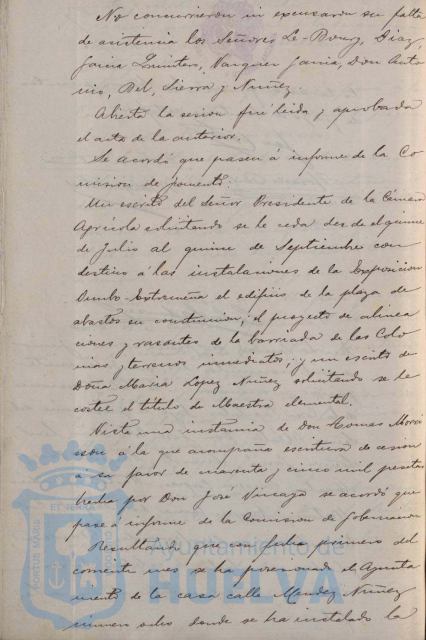 No concurrieron ni excusaron su falta
de asistencia los Señores Le-Bourg, Diaz,
Garcia Quintero, Vazquez Garcia, Don Anto
nio, Bel, Sierra y Nuñez.
Abierta la sesion fué leida y aprobada
el acta de la anterior.
Se acordó que pasen á informe de la Co
mision de fomento:
Un escrito del Señor Presidente de la Cámara
Agricola solicitando se le ceda desde el quince
de Julio al quince de Septiembre con
destino á las instalaciones de la Exposicion
Onubo-Extremeña el edificio de la plaza de
abastos en construccion; el proyecto de alinea
ciones y rasantes de la barriada de las Colo
nias y terrenos inmediatos; y un escrito de
Doña Maria Lopez Nuñez solicitando se le
costee el titulo de Maestra elemental.
Vista una instancia de Don Tomas
á la que acompaña escritura de cesion
á su favor de cuarenta y cinco mil pesetas
hecha por Don José se acordó que
pase á informe de la Comision de Gobernacion
Resultando que con fecha primero del
corriente mes se ha posesionado el Ayunta
miento de la casa calle Mendez Nuñez
numero ocho donde se ha instalado la
PORTUS MARIS ET TERRAE
Ayuntamiento de
HUELVA